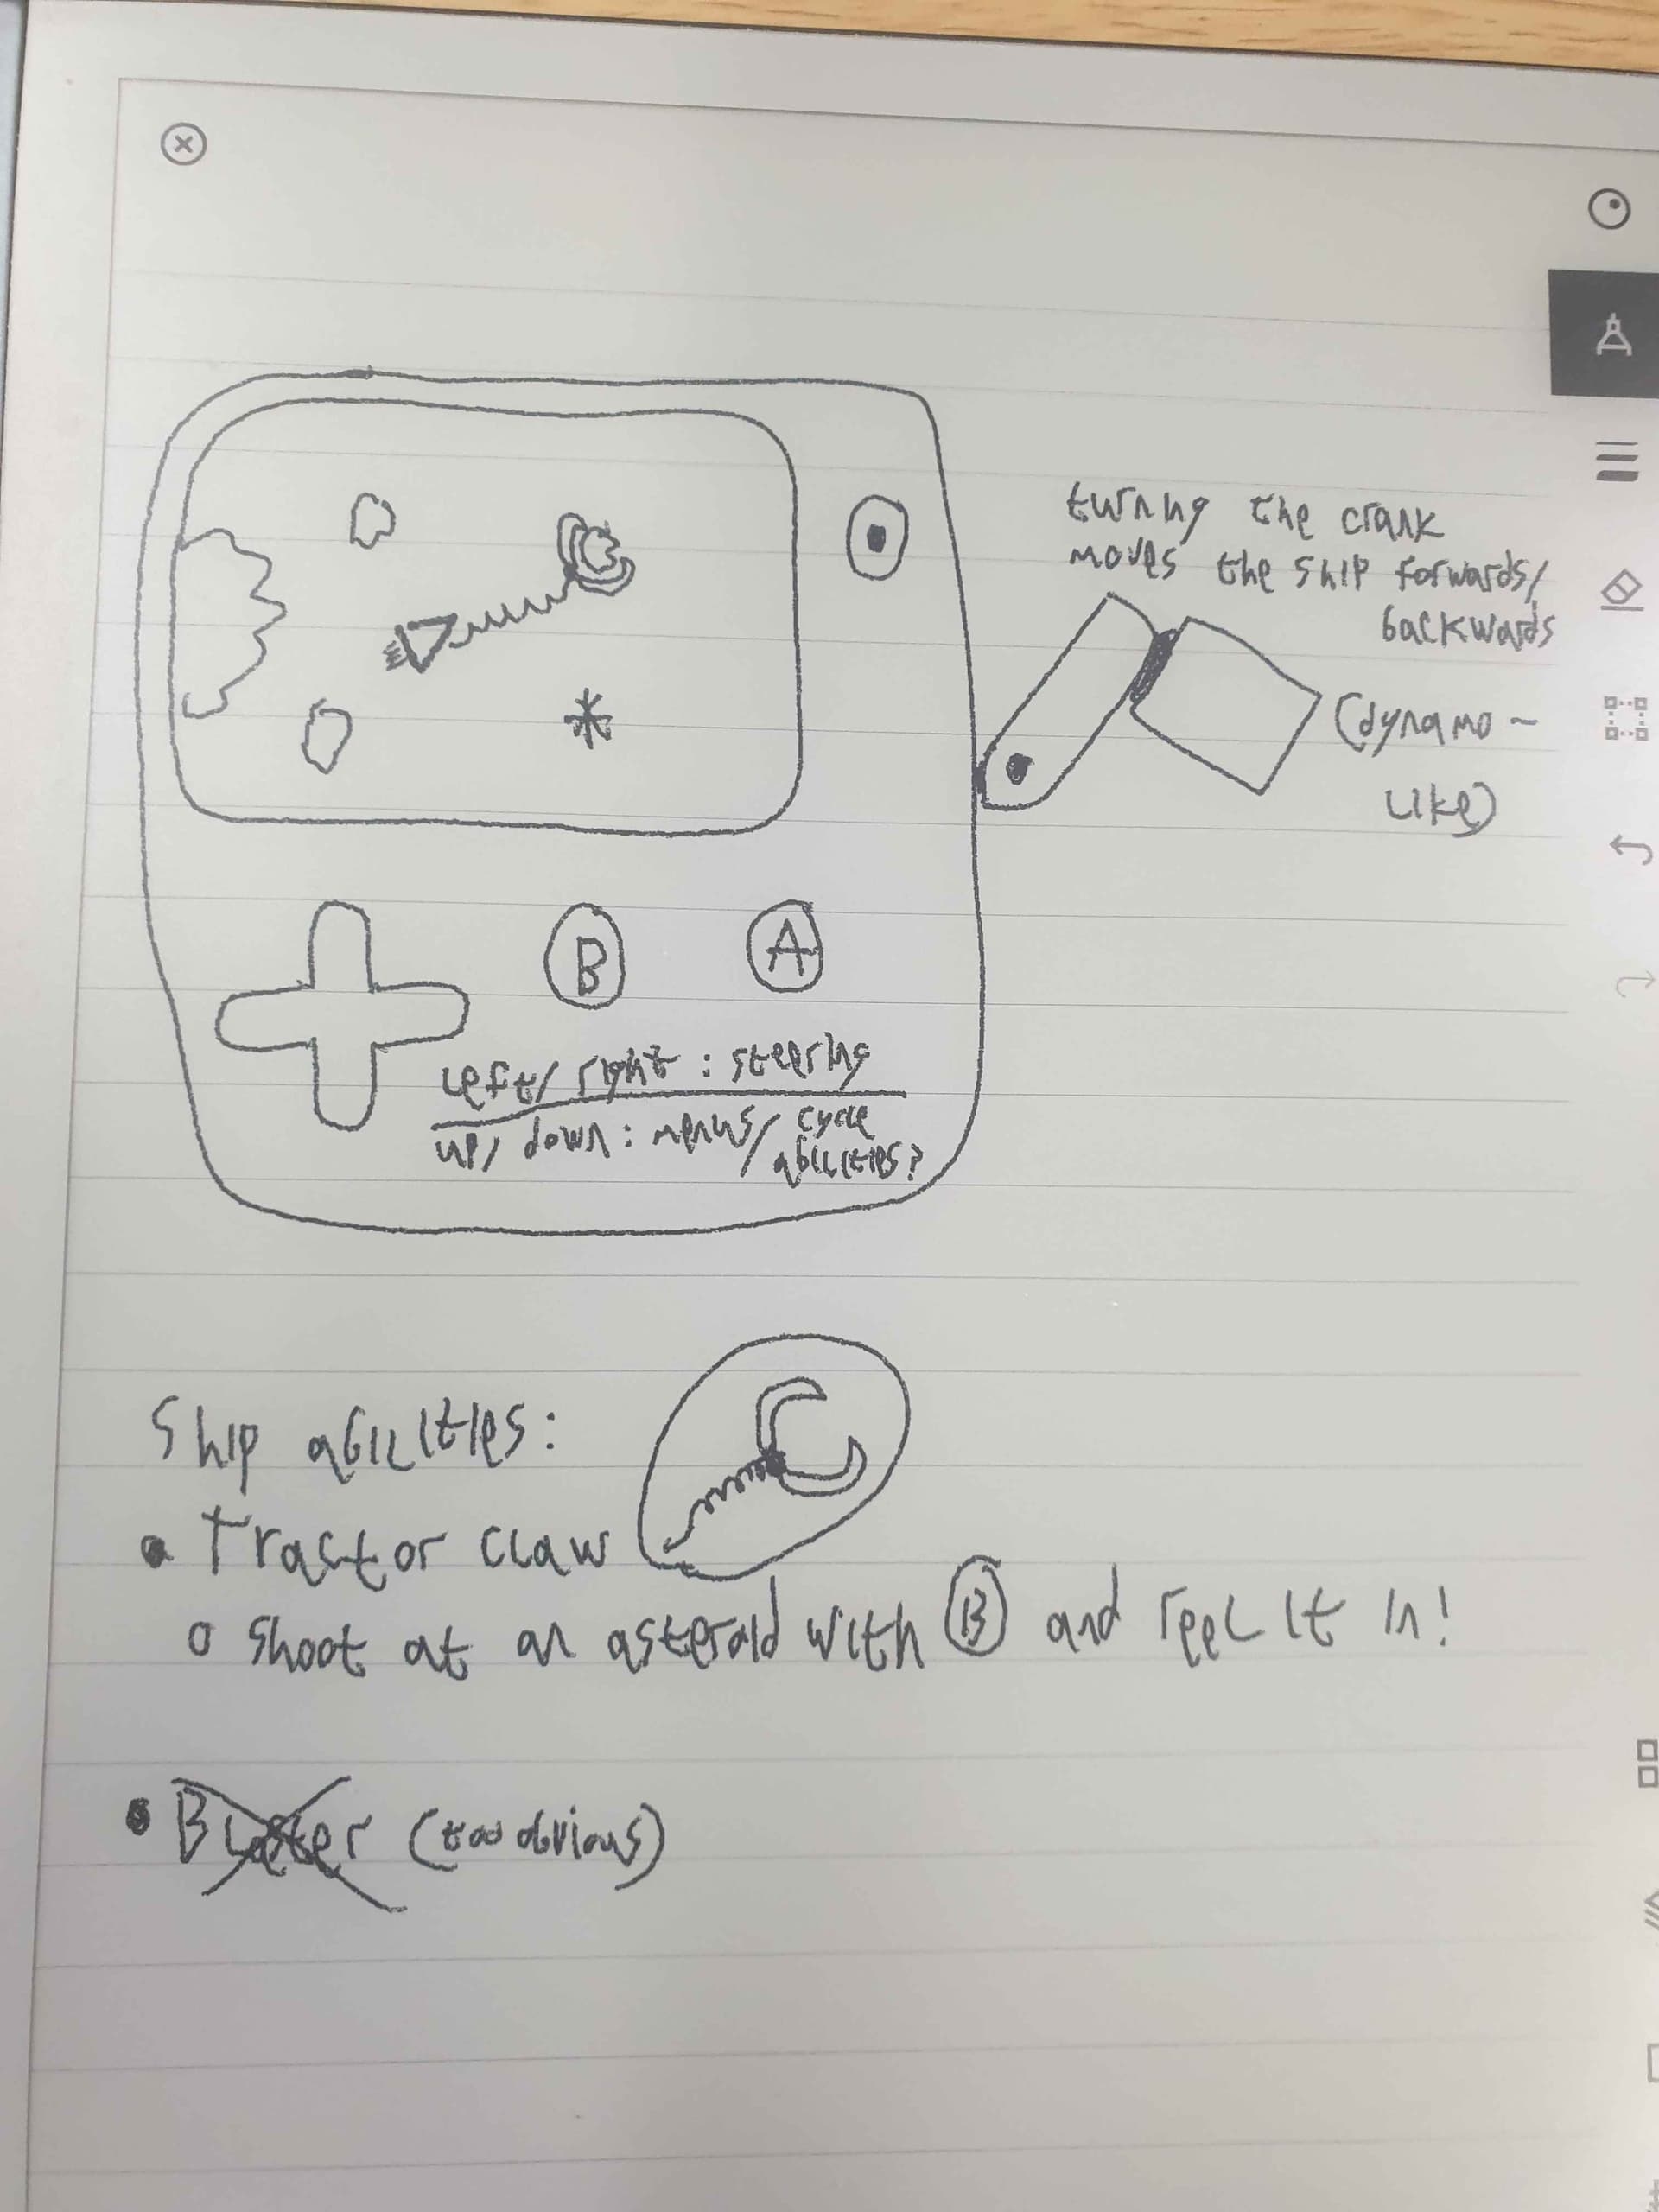 turning the crank
moves the ship forwards/
backwards
(dynamo-
like)
B
A
left/right: steering
up/down: menus/cycle
abilities?
Ship abilities:
• Tractor claw
o shoot at an asteroid with B and reel it in!
• Blaster (too obvious)